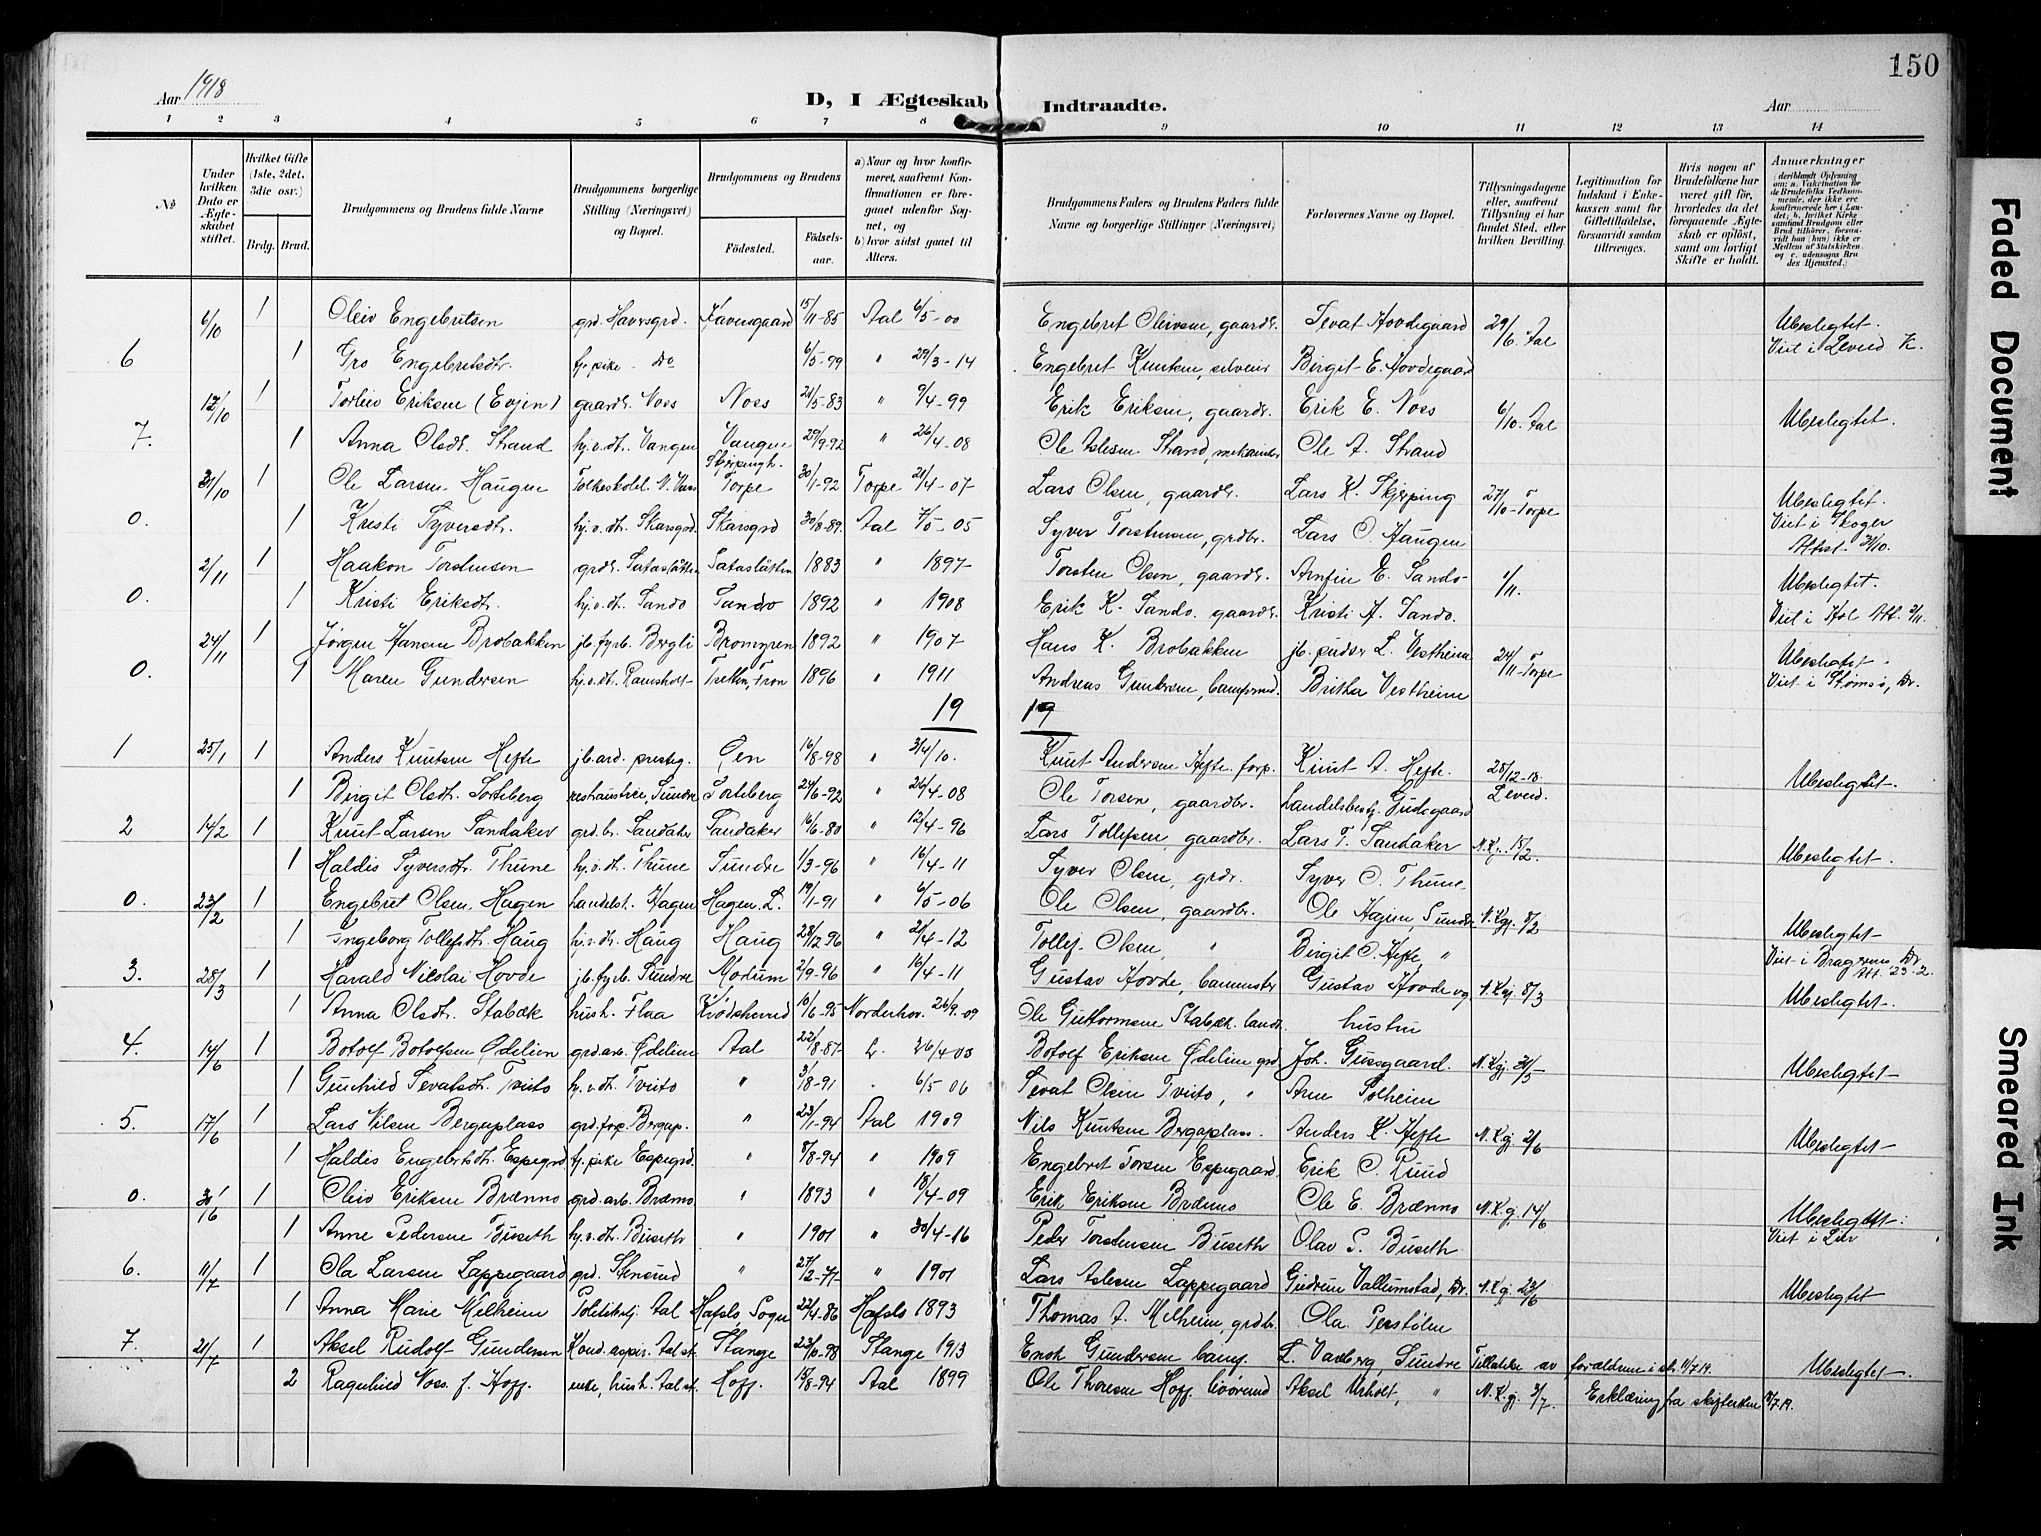 150
Aar 1918
D, I Ægteskab Indtraadte.
Aar
1 2 3 4 5 6 7 8 9 10 11 12 13 14
No
Under hvilken Dato er Ægteskabet stiftet.
Hvilket Gifte (1ste, 2det, 3die osv.)
Brdg. Brud.
Brudgommens og Brudens fulde Navne
Brudgommens borgerlige Stilling (Næringsvei) og Bopæl.
Brudgommens og Brudens
Födested.
Födselsaar.
a) Naar og hvor konfirmeret, saafremt Konfirmationen er foregaaet udenfor Sognet, og
b) hvor sidst gaaet til Alters.
Brudgommens Faders og Brudens Faders fulde Navne og borgerlige Stillinger (Næringsvei)
Forlovernes Navne og Bopæl.
Tillysningsdagene eller, saafremt Tillysning ei har fundet Sted, efter hvilken Bevilling.
Legitimation for Indskud i Enkekassen samt for Giftetilladelse, forsaavidt saadan tiltrænges.
Hvis nogen af Brudefolkene har været gift för, hvorledes da det foregaaende Ægteskab er oplöst, samt om lovligt Skifte er holdt.
Anmærkninger
6/10 1 Oleiv Engebritsen grd. Havesgrd. 15/11-85 Aal 6/5-00 Engebret Oleivsen, gaardb. Sevat Hovdegaard 29/6. Aal Ubeslegtet.
6 1 Gro Engebretsdtr. tj. pike Do 6/5-99 " 29/3-14 Engebret Knutsen, Birgit E. Hovdegaard Viet i Leveld K.
12/10 1 Torleiv Eriksen (Evjen) gaardb. Noss Noss 21/5-83 " 9/4-99 Erik Eriksen, gaardb. Erik E. Noss 6/10. Aal Ubeslegtet.
7. 1 Anna Olsdtr. Strand hj.v.dt. Vangen Vangen 29/9-92 " 26/4-08 Ole Aslesen Strand, Ole A. Strand
31/10 1 Ole Larsen Haugen Torpe 30/1-92 Torpe 21/4-07 Lars Olsen, gaardb. Lars K. Skjerping 27/10-Torpe Ubeslegtet.
0. 1 Kristi Syversdtr. hj.v.dt. Skarsgrd Skarsgrd 30/8-89. Aal 7/5-05 Syver Torstensen, grdbr. Lars O. Haugen Viet i Skoger Attest 31/10.
2/11 1 Haakon Torstensen 1883 " 1897 Torsten Olsen, gaardb. Arnfin E. Sando 1/11. Ubeslegtet.
0. 1 Kristi Eriksdtr. hj.v.dt. Sando Sando 1892 " 1908 Erik K. Sando. gaardb. Kristi A. Sando. Viet i Hol Att. 2/11
24/11 1 Jørgen Hansen Brobakken jb. fyrb. Bergli Bromyren 1892 " 1907 Hans K. Brobakken jb. pudser L. Vestheim 24/11-Torpe Ubeslegtet.
0. 1 Maren Gundersen hj.v.dt. Ramsholt 1896 " 1911 Andreas Gundersen, Britha Vestheim Viet i Strømsø, Dr.
19 19
1 25/1 1 Anders Knutsen Hefte jb. arb. presteg. Øen 16/8-98 " 3/4/10. Knut Andersen Hefte. forp. Knut A. Hefte. 28/12-18. Leveld. Ubeslegtet.
1 Birgit Olsdtr. Sorteberg Sundre Sorteberg 24/6-92 " 26/4-08 Ole Torsen, gaardbr. Gudegaard
2 14/2 1 Knut Larsen Sandaker grd. br. Sandaker Sandaker 16/6-80 " 12/4-96 Lars Tollefsen, gaardbr. Lars T. Sandaker N.Kg. 15/2. Ubeslegtet.
1 Haldis Syversdtr. Thune hj.v.dt. Thune Sundre 1/3-96 " 16/4-11 Syver Olsen, grdr. Syver O. Thune
0. 23/2 1 Engebret Olsen Hagen handelsb. Hagen Hagen. L. 19/1-91 " 6/5-06 Ole Olsen, gaardbr. Ole Hagen, Sundre N. Kg. 8/2 Ubeslegtet
1 Ingeborg Tollefsdt. Haug hj.v.dt. Haug Haug 28/12 96 " 21/4-12 Tollef Olsen, " Birgit O. Hefte, " Viet i Bragernes Dr. Att. 23-2.
3. 28/3 1 Harald Nicolai Hovde jb. fyrb. Sundre Modum 2/9-96 " 16/4-11 Gustav Hovde, Gustav Hovde og N.Kg. 8/3 Ubeslegtet.
1 Anna Olsdtr. Stabæk hush. Flaa Krødsherred 10/6-95 Norderhov. 26/9-09 Ole Guttormsen Stabæk. hustru
4. 14/6 1 Botolf Botolfsen Ødelien grd. arb. Ødelien Aal 22/8-87 26/4-03 Botolf Eriksen Ødelien grd. Joh. Gudsgaard. N.Kg. 31/5 Ubeslegtet
1 Gunhild Sevatsdt. Tveito hj.v.dt Tveito " 3/8-91 6/5 06 Sevat Olsen Tveito, " Arne Solheim
5. 17/6 1 Lars Nilsen Bergaplass grd. forp. Bergap. " 23/1-94 Aal 1909 Nils Knutsen Bergaplass. Anders K Hefte N.Kg. 2/6 Ubeslegtet
1 Haldis Engebretsdt. Espegrd tj. pike Espegrd. " 8/8-94 " 1909 Engebret Torsen Espegaard Erik O. Ruud
0. 30/6 1 Oleiv Eriksen Brænno grd. arb. Brænno " 1893 " 18/4-09 Erik Eriksen Brænno Ole E. Brænno N.Kg. 14/6 Ubeslegtet.
1 Anne Pedersen Buseth hj.v.dt. Buseth " 1901 " 30/4-16 Peder Torstensen Buseth Olav P. Buseth Viet i Lier
6. 11/7 1 Ola Larsen Lappegaard grd. Stensrud " 27/2-77 " 1901 Lars Aslesen Lappegaard Gudrun Vallumstad, Dr. N.Kg. 23/6 Ubeslegtet
1 Anna Marie Melheim Aal Hafslo, Sogn 22/4-86 Hafslo 1893 Thomas A. Melheim, grdbr. Ola Perstølen
7. 21/7 1 Aksel Rudolf Gundersen Kond. aspir. Aal st. Stange 23/10-98 Stange 1913 Enok Gundersen L. Vadberg Sundre Tillatelse av foreldrene i str. 11/7 19. Ubeslegtet.
2 Ragnhild Noss f. Hoff. enke, hush. Aal st. Hoff. 15/8-94 Aal 1899 Ole Thoresen Hoff. Aksel Urholt, " N.Kg. 3/7. Erklæring fra skifteretten 11/7 19.
Faded Document
Smeared Ink